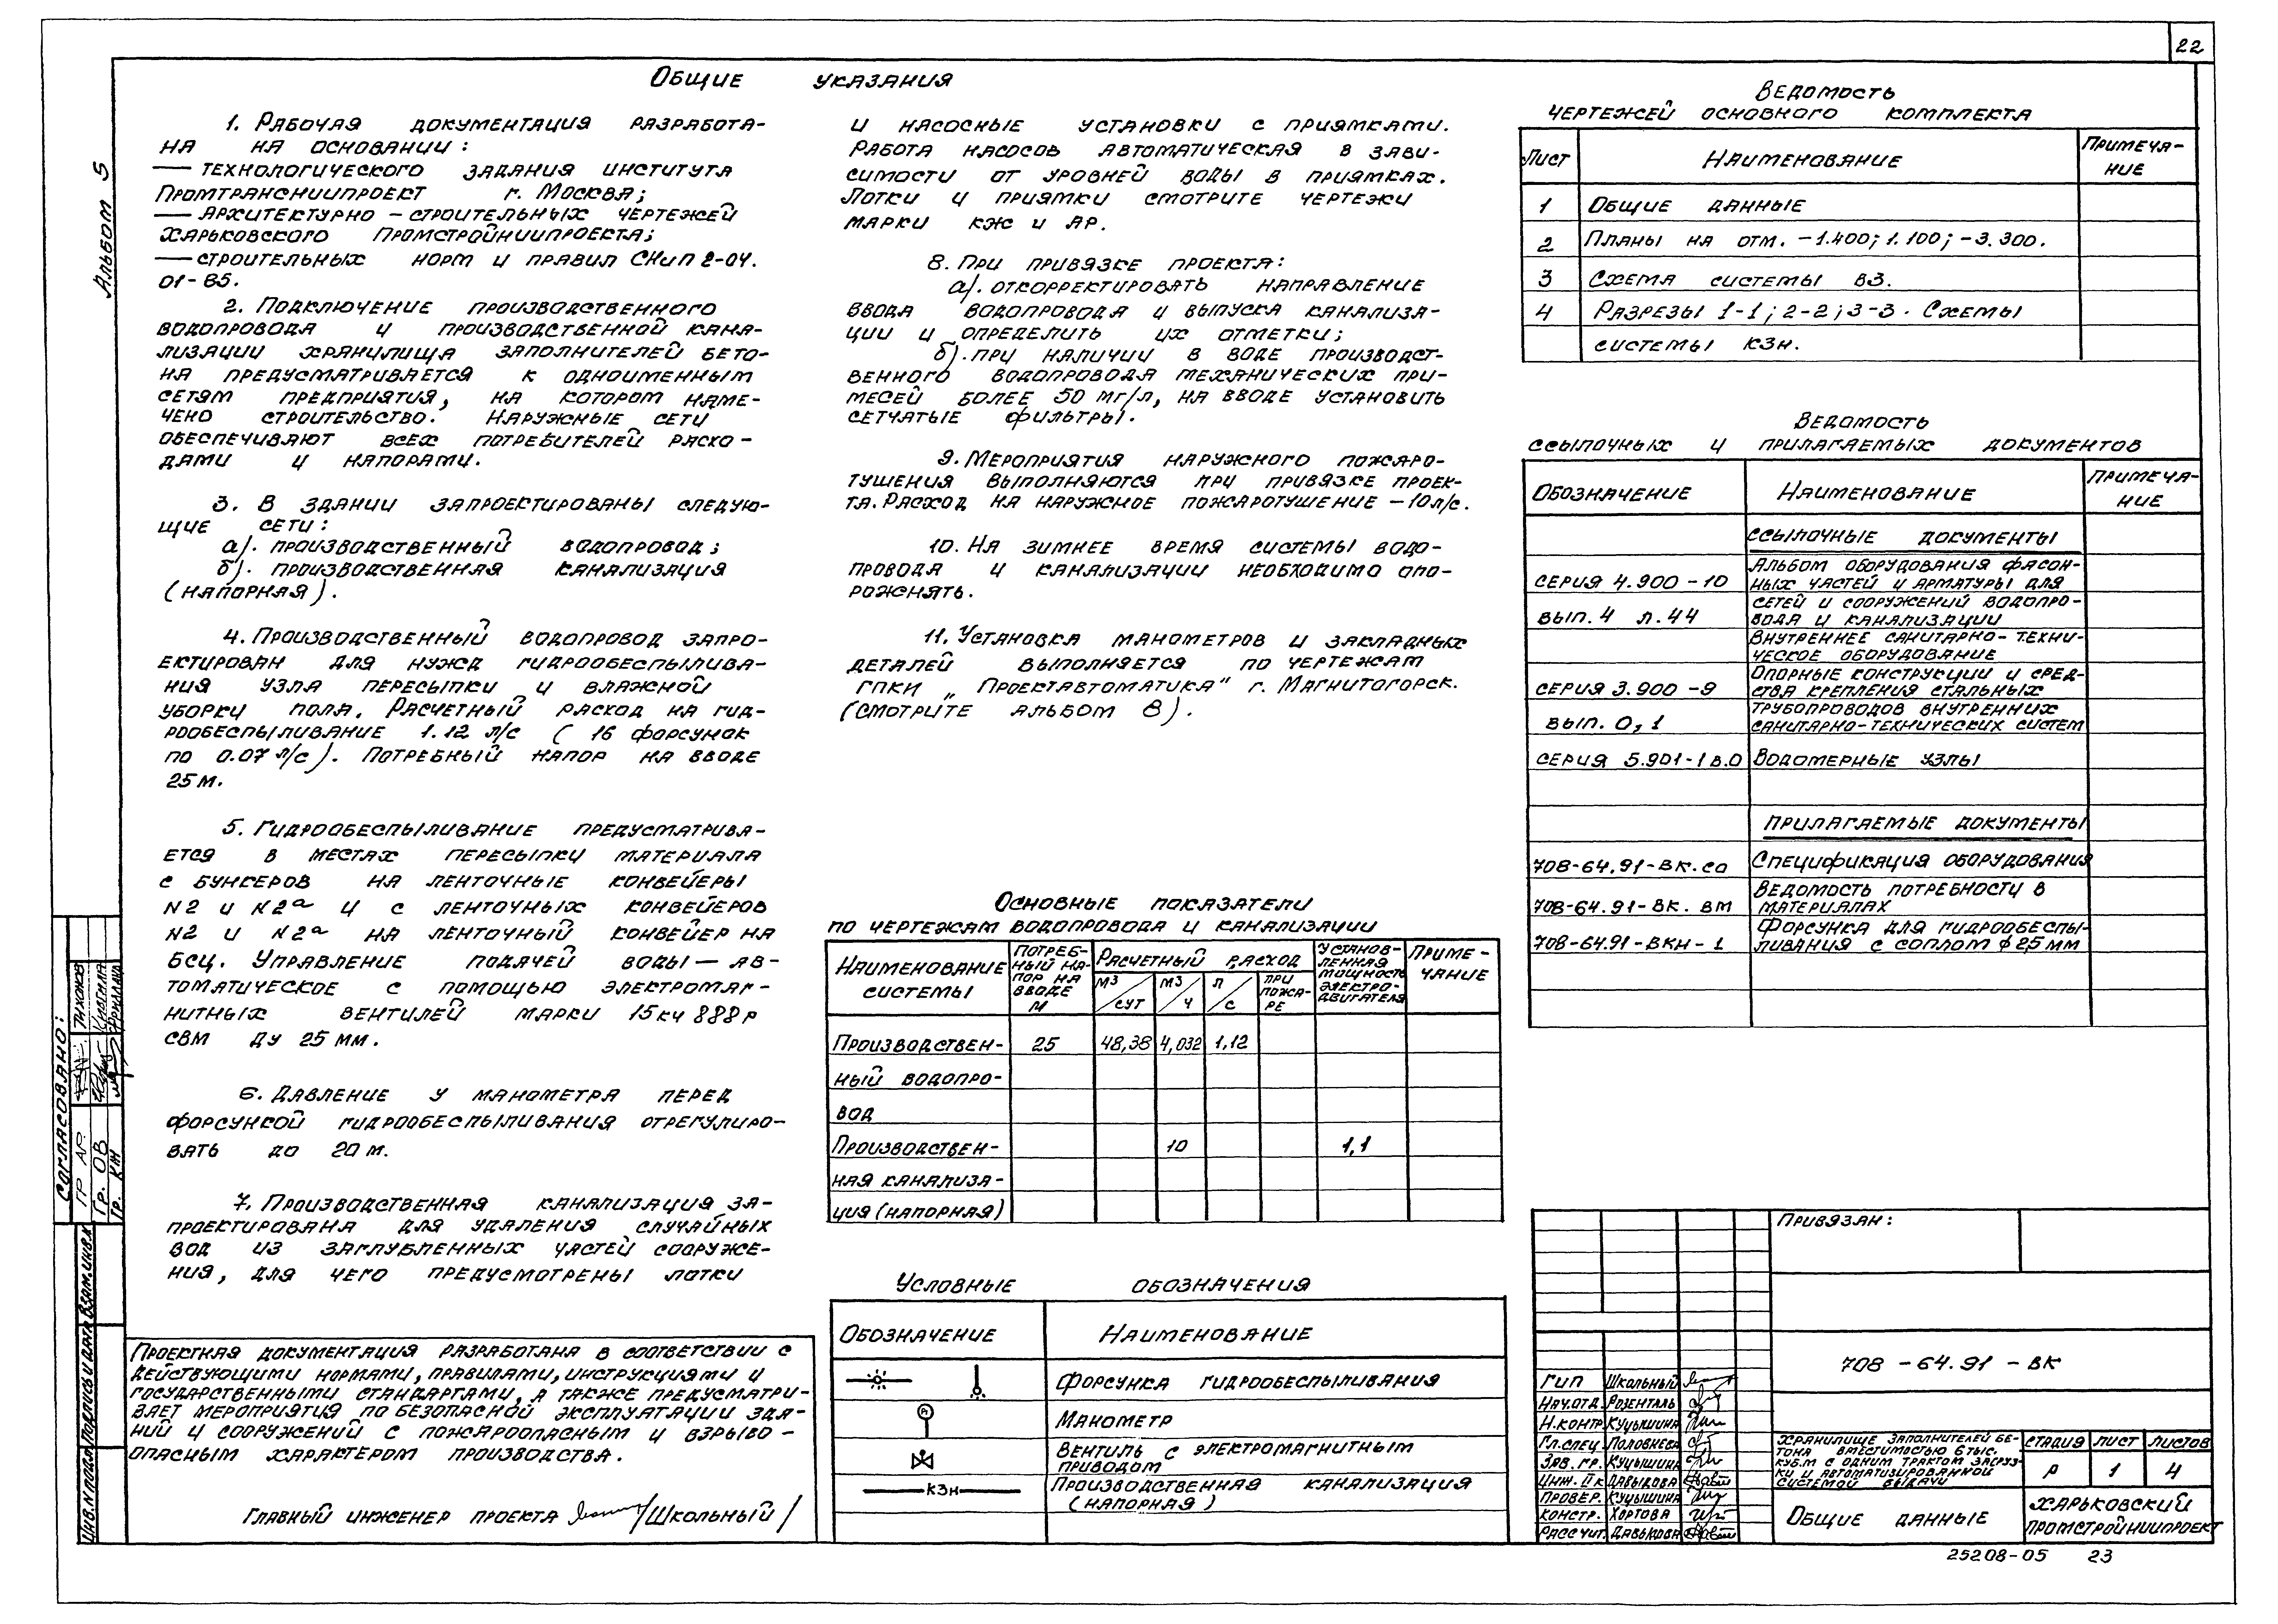 22
Альбом 5
Общие указания
1. Рабочая документация разработа-
на на основании:
— технологического задания института
Промтрансниипроект г. Москва;
— архитектурно-строительных чертежей
Харьковского Промстройниипроекта;
— строительных норм и правил СНиП 2-04.
01-85.
2. Подключение производственного
водопровода и производственной кана-
лизации хранилища заполнителей бето-
на предусматривается к одноименным
сетям предприятия, на котором наме-
чено строительство. Наружные сети
обеспечивают всех потребителей расхо-
дами и напорами.
3. В здании запроектированы следую-
щие сети:
а). производственный водопровод;
б). производственная канализация
(напорная).
4. Производственный водопровод запро-
ектирован для нужд гидрообеспылива-
ния узла пересыпки и влажной
уборки пола. Расчетный расход на гид-
рообеспыливание 1.12 л/с (16 форсунок
по 0.07 л/с). Потребный напор на вводе
25 м.
5. Гидрообеспыливание предусматрива-
ется в местах пересыпки материала
с бункеров на ленточные конвейеры
N2 и N2а и с ленточных конвейеров
N2 и N2а на ленточный конвейер на
бсц. Управление подачей воды — ав-
томатическое с помощью электромаг-
нитных вентилей марки 15кч 888р
СВМ Ду 25 мм.
6. Давление у манометра перед
форсункой гидрообеспыливания отрегулиро-
вать до 20 м.
7. Производственная канализация за-
проектирована для удаления случайных
вод из заглубленных частей сооруже-
ния, для чего предусмотрены лотки
и насосные установки с приямками.
Работа насосов автоматическая в зави-
симости от уровней воды в приямках.
Лотки и приямки смотрите чертежи
марки КЖ и АР.
8. При привязке проекта:
а). откорректировать направление
ввода водопровода и выпуска канализа-
ции и определить их отметки;
б). при наличии в воде производст-
венного водопровода механических при-
месей более 50 мг/л, на вводе установить
сетчатые фильтры.
9. Мероприятия наружного пожаро-
тушения выполняются при привязке проек-
та. Расход на наружное пожаротушение — 10 л/с.
10. На зимнее время системы водо-
провода и канализации необходимо опо-
рожнять.
11. Установка манометров и закладных
деталей выполняется по чертежам
ГПКИ „Проектавтоматика" г. Магнитогорск.
(смотрите альбом 8).
Основные показатели
по чертежам водопровода и канализации
Наименование системы | Потреб-ный на-пор на вводе м | Расчетный расход | Установ-ленная мощность электро-двигателя | Приме-чание
м3/сут | м3/ч | л/с | при пожа-ре
Производствен- 25 48,38 4,032 1,12
ный водопро-
вод
Производствен- 10 1,1
ная канализа-
ция (напорная)
Условные обозначения
Обозначение Наименование
Форсунка гидрообеспыливания
Рт
Манометр
Вентиль с электромагнитным
приводом
КЗн Производственная канализация
(напорная)
Проектная документация разработана в соответствии с
действующими нормами, правилами, инструкциями и
государственными стандартами, а также предусматри-
вает мероприятия по безопасной эксплуатации зда-
ний и сооружений с пожароопасным и взрыво-
опасным характером производства.
Главный инженер проекта /Школьный/
Ведомость
чертежей основного комплекта
Лист Наименование Примеча-
ние
1 Общие данные
2 Планы на отм. -1.400; 1.100; -3.300.
3 Схема системы В3.
4 Разрезы 1-1; 2-2; 3-3. Схемы
системы КЗн.
Ведомость
ссылочных и прилагаемых документов
Обозначение Наименование Примеча-
ние
Ссылочные документы
Серия 4.900-10
вып. 4 л. 44
Альбом оборудования фасон-
ных частей и арматуры для
сетей и сооружений водопро-
вода и канализации
Внутреннее санитарно-техни-
ческое оборудование
Серия 3.900-9
вып. 0, 1
Опорные конструкции и сред-
ства крепления стальных
трубопроводов внутренних
санитарно-технических систем
Серия 5.901-1 в.0 Водомерные узлы
Прилагаемые документы
708-64.91-ВК.СО Спецификация оборудования
708-64.91-ВК.ВМ Ведомость потребности в
материалах
708-64.91-ВКН-1 Форсунка для гидрообеспы-
ливания с соплом ф 2,5 мм
Привязан:
708-64.91-ВК
ГИП Школьный
Нач.отд. Розенталь
Н.контр. Куцышина
Гл.спец. Половнева
Зав.гр. Куцышина
Инж. II к. Давыдова
Провер. Куцышина
Констр. Хортова
Рассчит. Давыдова
Хранилище заполнителей бе-
тона вместимостью 6 тыс.
куб.м с одним трактом загруз-
ки и автоматизированной
системой выдачи
Стадия Лист Листов
Р 1 4
Общие данные
Харьковский
Промстройниипроект
25208-05 23
Согласовано:
Гр АР Тихонов
Гр. ОВ
Гр. КЖ
Взам.инв.N
Подпись и дата
Инв.N подл.